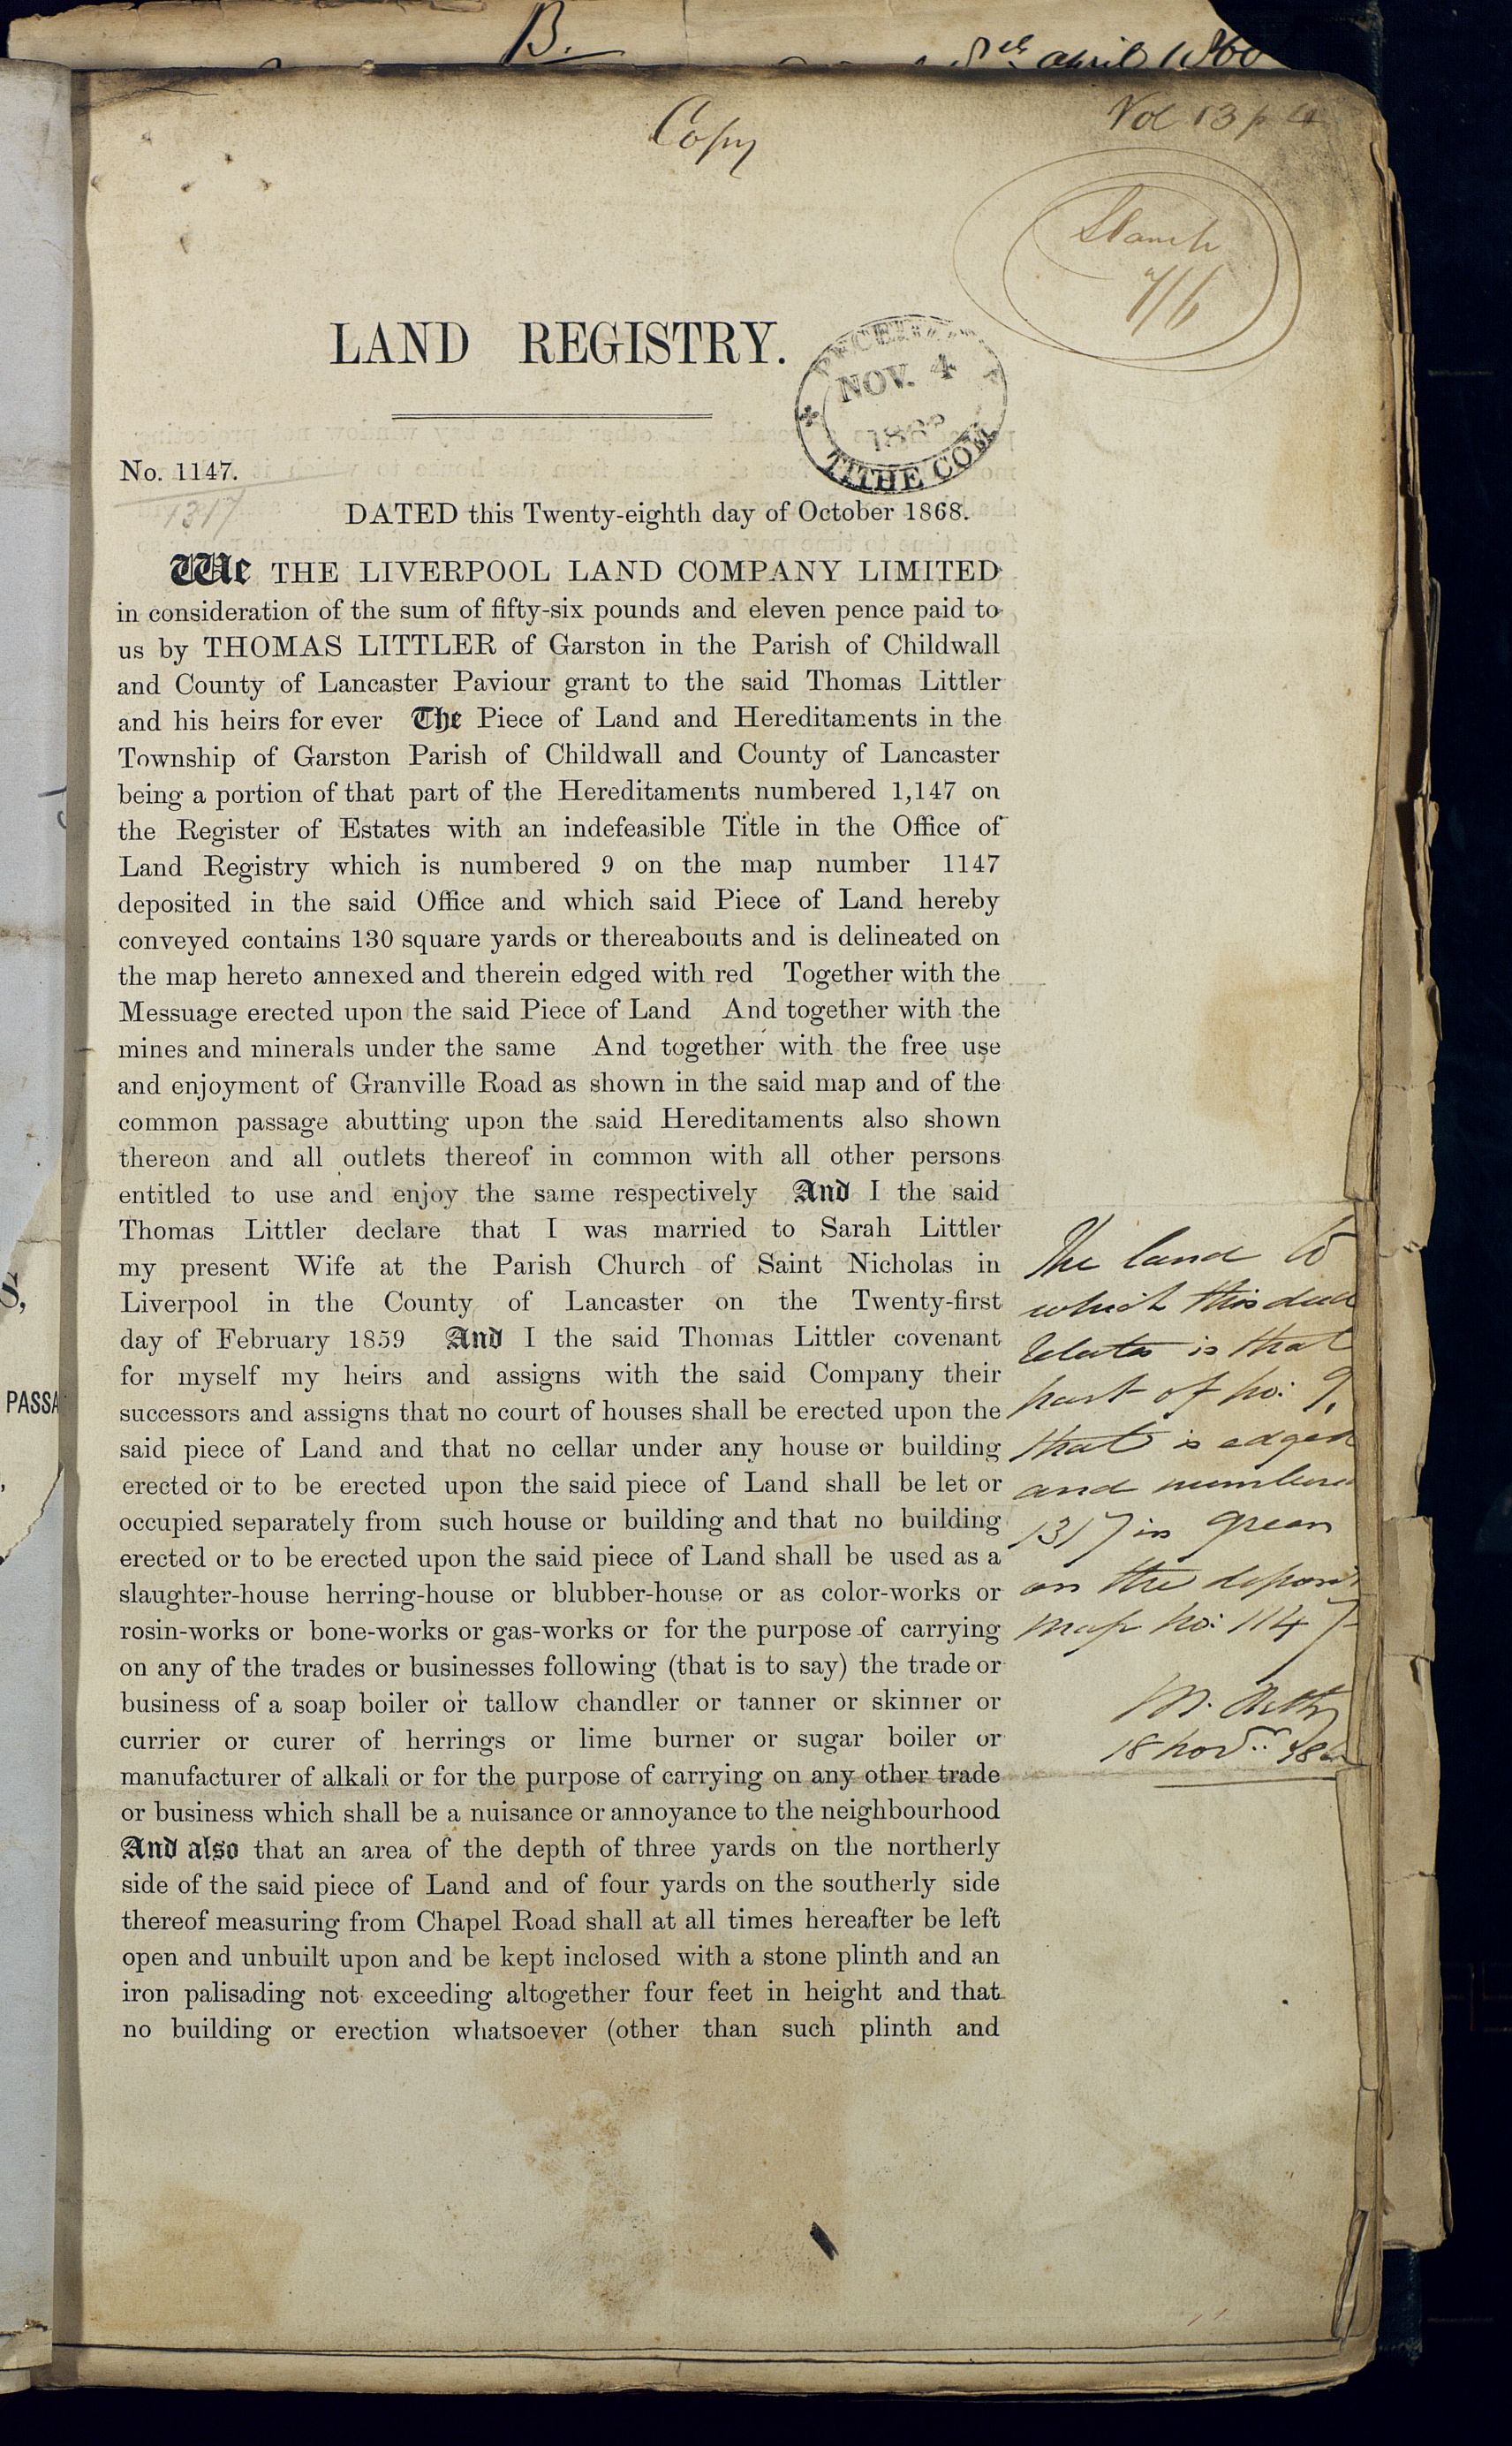 B.
april 1860
Copy
Vol 13 p 4
Stamp
7/6
LAND REGISTRY.
NOV. 4
TITHE COM
No. 1147.
1317
DATED this Twenty-eighth day of October 1868.
We THE LIVERPOOL LAND COMPANY LIMITED
in consideration of the sum of fifty-six pounds and eleven pence paid to
us by THOMAS LITTLER of Garston in the Parish of Childwall
and County of Lancaster Paviour grant to the said Thomas Littler
and his heirs for ever The Piece of Land and Hereditaments in the
Township of Garston Parish of Childwall and County of Lancaster
being a portion of that part of the Hereditaments numbered 1,147 on
the Register of Estates with an indefeasible Title in the Office of
Land Registry which is numbered 9 on the map number 1147
deposited in the said Office and which said Piece of Land hereby
conveyed contains 130 square yards or thereabouts and is delineated on
the map hereto annexed and therein edged with red Together with the
Messuage erected upon the said Piece of Land And together with the
mines and minerals under the same And together with the free use
and enjoyment of Granville Road as shown in the said map and of the
common passage abutting upon the said Hereditaments also shown
thereon and all outlets thereof in common with all other persons
entitled to use and enjoy the same respectively And I the said
Thomas Littler declare that I was married to Sarah Littler
my present Wife at the Parish Church of Saint Nicholas in
Liverpool in the County of Lancaster on the Twenty-first
day of February 1859 And I the said Thomas Littler covenant
for myself my heirs and assigns with the said Company their
successors and assigns that no court of houses shall be erected upon the
said piece of Land and that no cellar under any house or building
erected or to be erected upon the said piece of Land shall be let or
occupied separately from such house or building and that no building
erected or to be erected upon the said piece of Land shall be used as a
slaughter-house herring-house or blubber-house or as color-works or
rosin-works or bone-works or gas-works or for the purpose of carrying
on any of the trades or businesses following (that is to say) the trade or
business of a soap boiler or tallow chandler or tanner or skinner or
currier or curer of herrings or lime burner or sugar boiler or
manufacturer of alkali or for the purpose of carrying on any other trade
or business which shall be a nuisance or annoyance to the neighbourhood
And also that an area of the depth of three yards on the northerly
side of the said piece of Land and of four yards on the southerly side
thereof measuring from Chapel Road shall at all times hereafter be left
open and unbuilt upon and be kept inclosed with a stone plinth and an
iron palisading not exceeding altogether four feet in height and that
no building or erection whatsoever (other than such plinth and
The land to
which this deed
relates is that
part of no: 9,
that is edged
and numbered
1317 in green
on the deposit
map no: 1147
18 Nov.
PASSA
S,